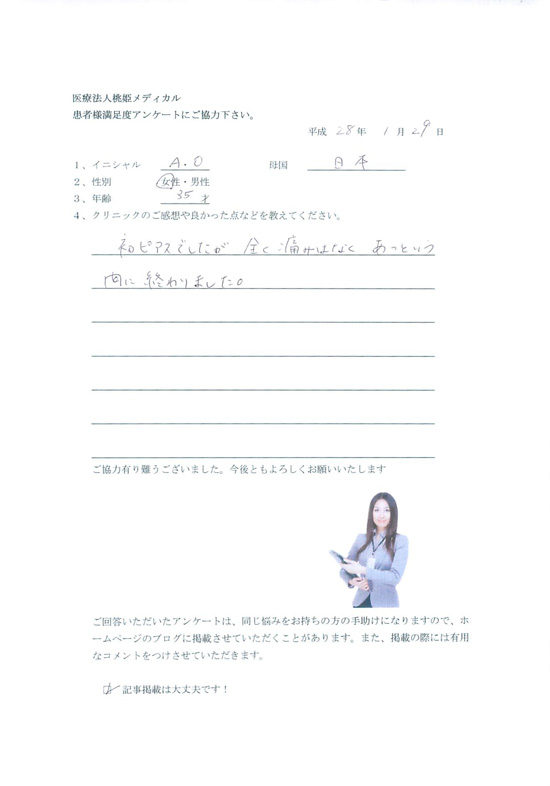 医療法人桃姫メディカル
患者様満足度アンケートにご協力下さい。
平成 28 年 1 月 29 日
1、イニシャル A.O 母国 日本
2、性別 女性・男性
3、年齢 35才
4、クリニックのご感想や良かった点などを教えてください。
初ピアスでしたが 全く痛みはなく あっという
間に終わりました。
ご協力有り難うございました。今後ともよろしくお願いいたします
ご回答いただいたアンケートは、同じ悩みをお持ちの方の手助けになりますので、ホ
ームページのブログに掲載させていただくことがあります。また、掲載の際には有用
なコメントをつけさせていただきます。
☑ 記事掲載は大丈夫です！